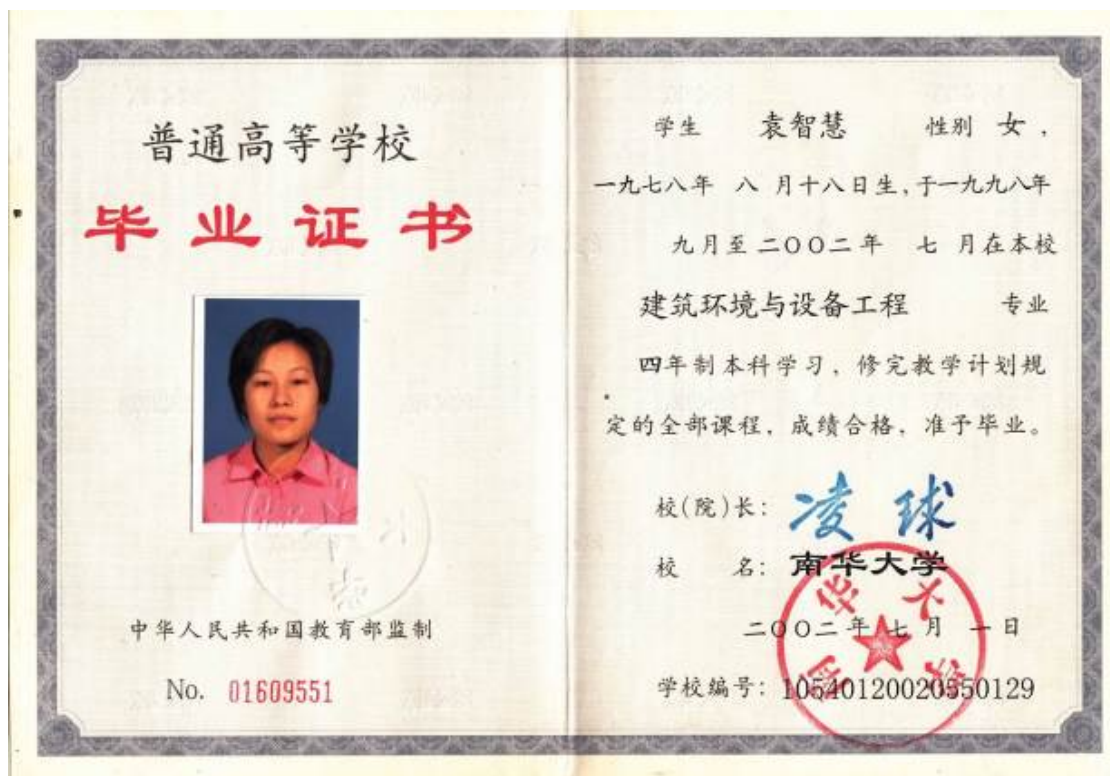 普通高等学校
毕业证书
中华人民共和国教育部监制
No. 01609551
学生 袁智慧 性别 女，
一九七八年 八 月十八日生，于一九九八年
九月至二〇〇二年 七 月在本校
建筑环境与设备工程 专业
四年制本科学习，修完教学计划规
定的全部课程，成绩合格，准予毕业。
校(院)长： 凌球
校 名： 南华大学
二〇〇二年七月 一日
学校编号： 105401200205550129
南华大学